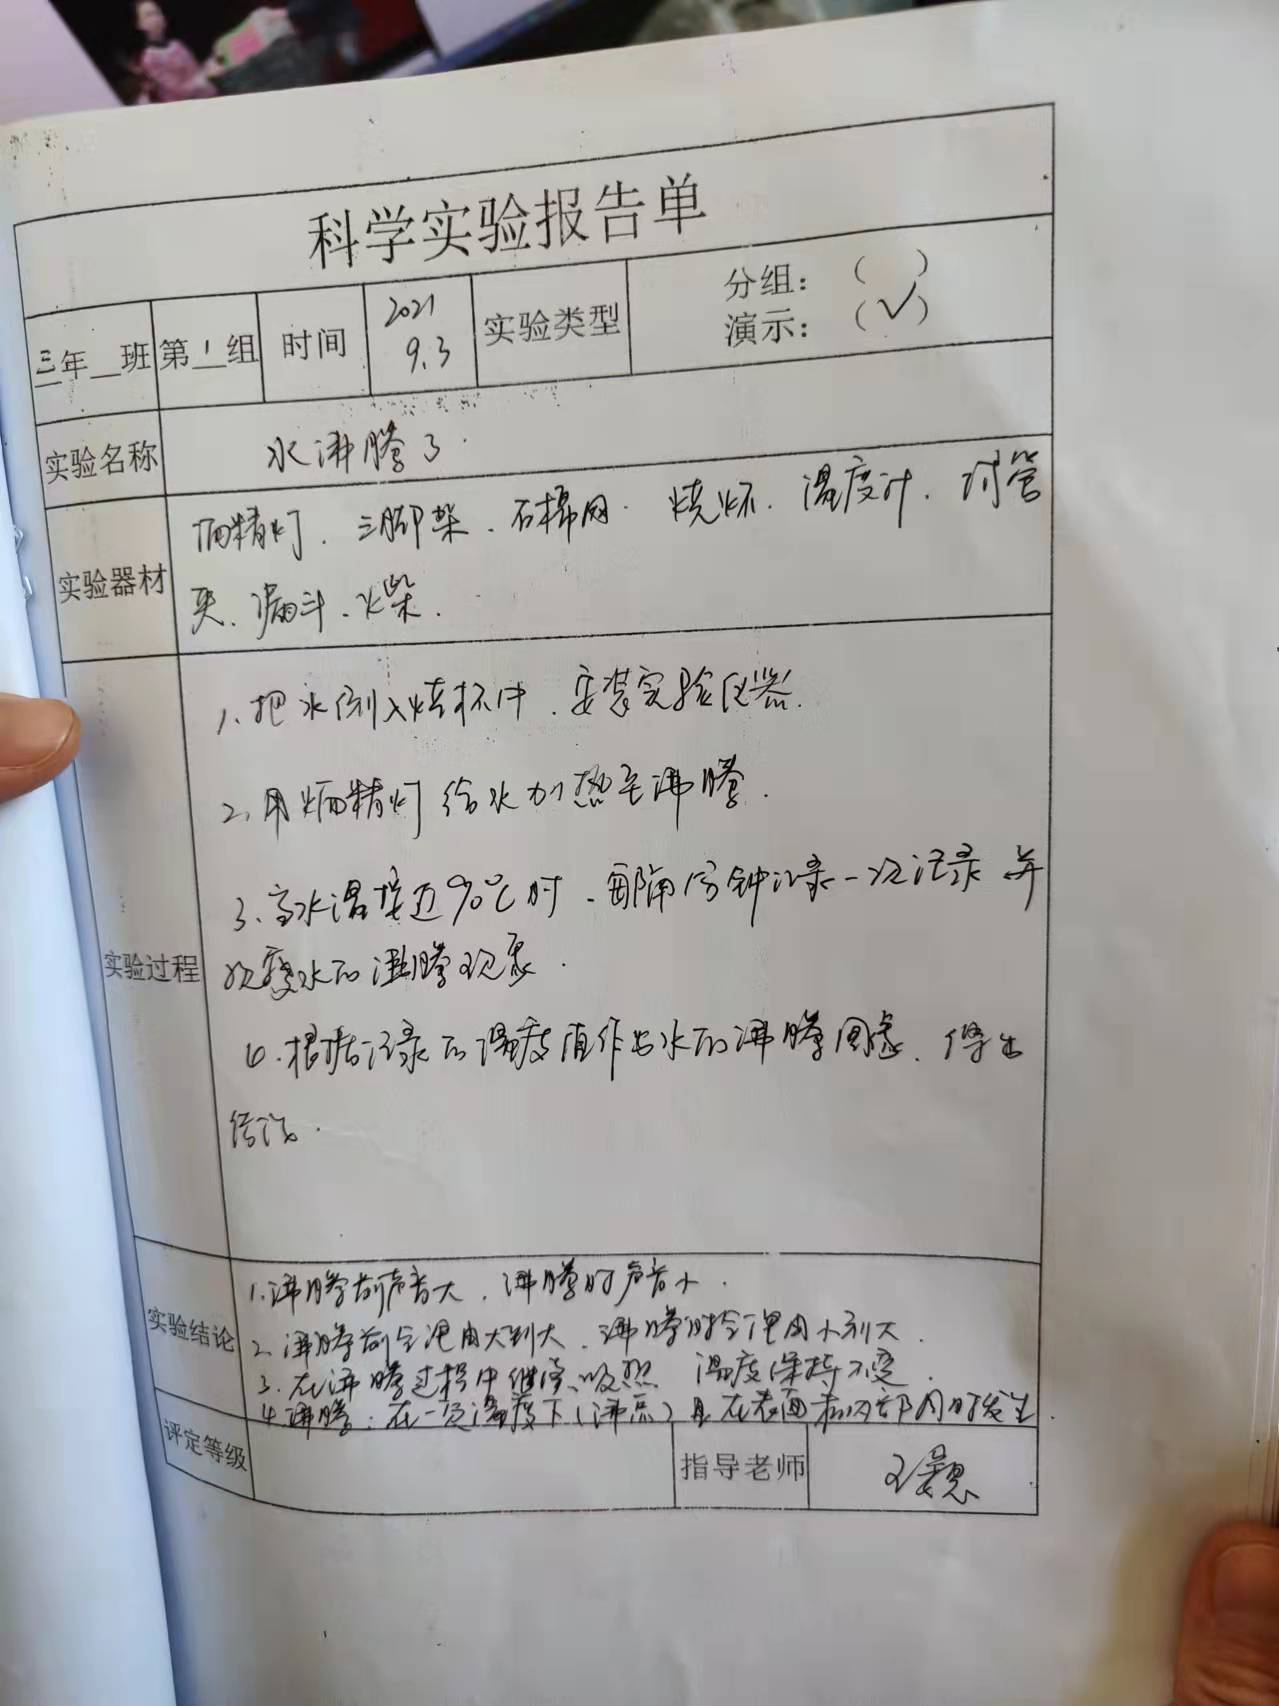 科学实验报告单
三年__班 第1组 时间 2021 9.3 实验类型 分组：（ ）
演示：（√）
实验名称 水沸腾了.
实验器材 酒精灯、三脚架、石棉网、烧杯、温度计、试管
夹、漏斗、火柴.
实验过程
1、把水倒入烧杯中、安装实验仪器.
2、用酒精灯给水加热至沸腾.
3、当水温接近90℃时、每隔1分钟记录一次记录 并
观察水的沸腾现象.
4、根据记录的温度值作出水的沸腾图象、得出
结论.
实验结论
1、沸腾前声音大、沸腾时声音小.
2、沸腾前气泡由大到大、沸腾时气泡由小到大.
3、在沸腾过程中继续吸热 温度保持不变.
4、沸腾：在一定温度下（沸点）且在表面和内部同时发生.
评定等级 指导老师 王